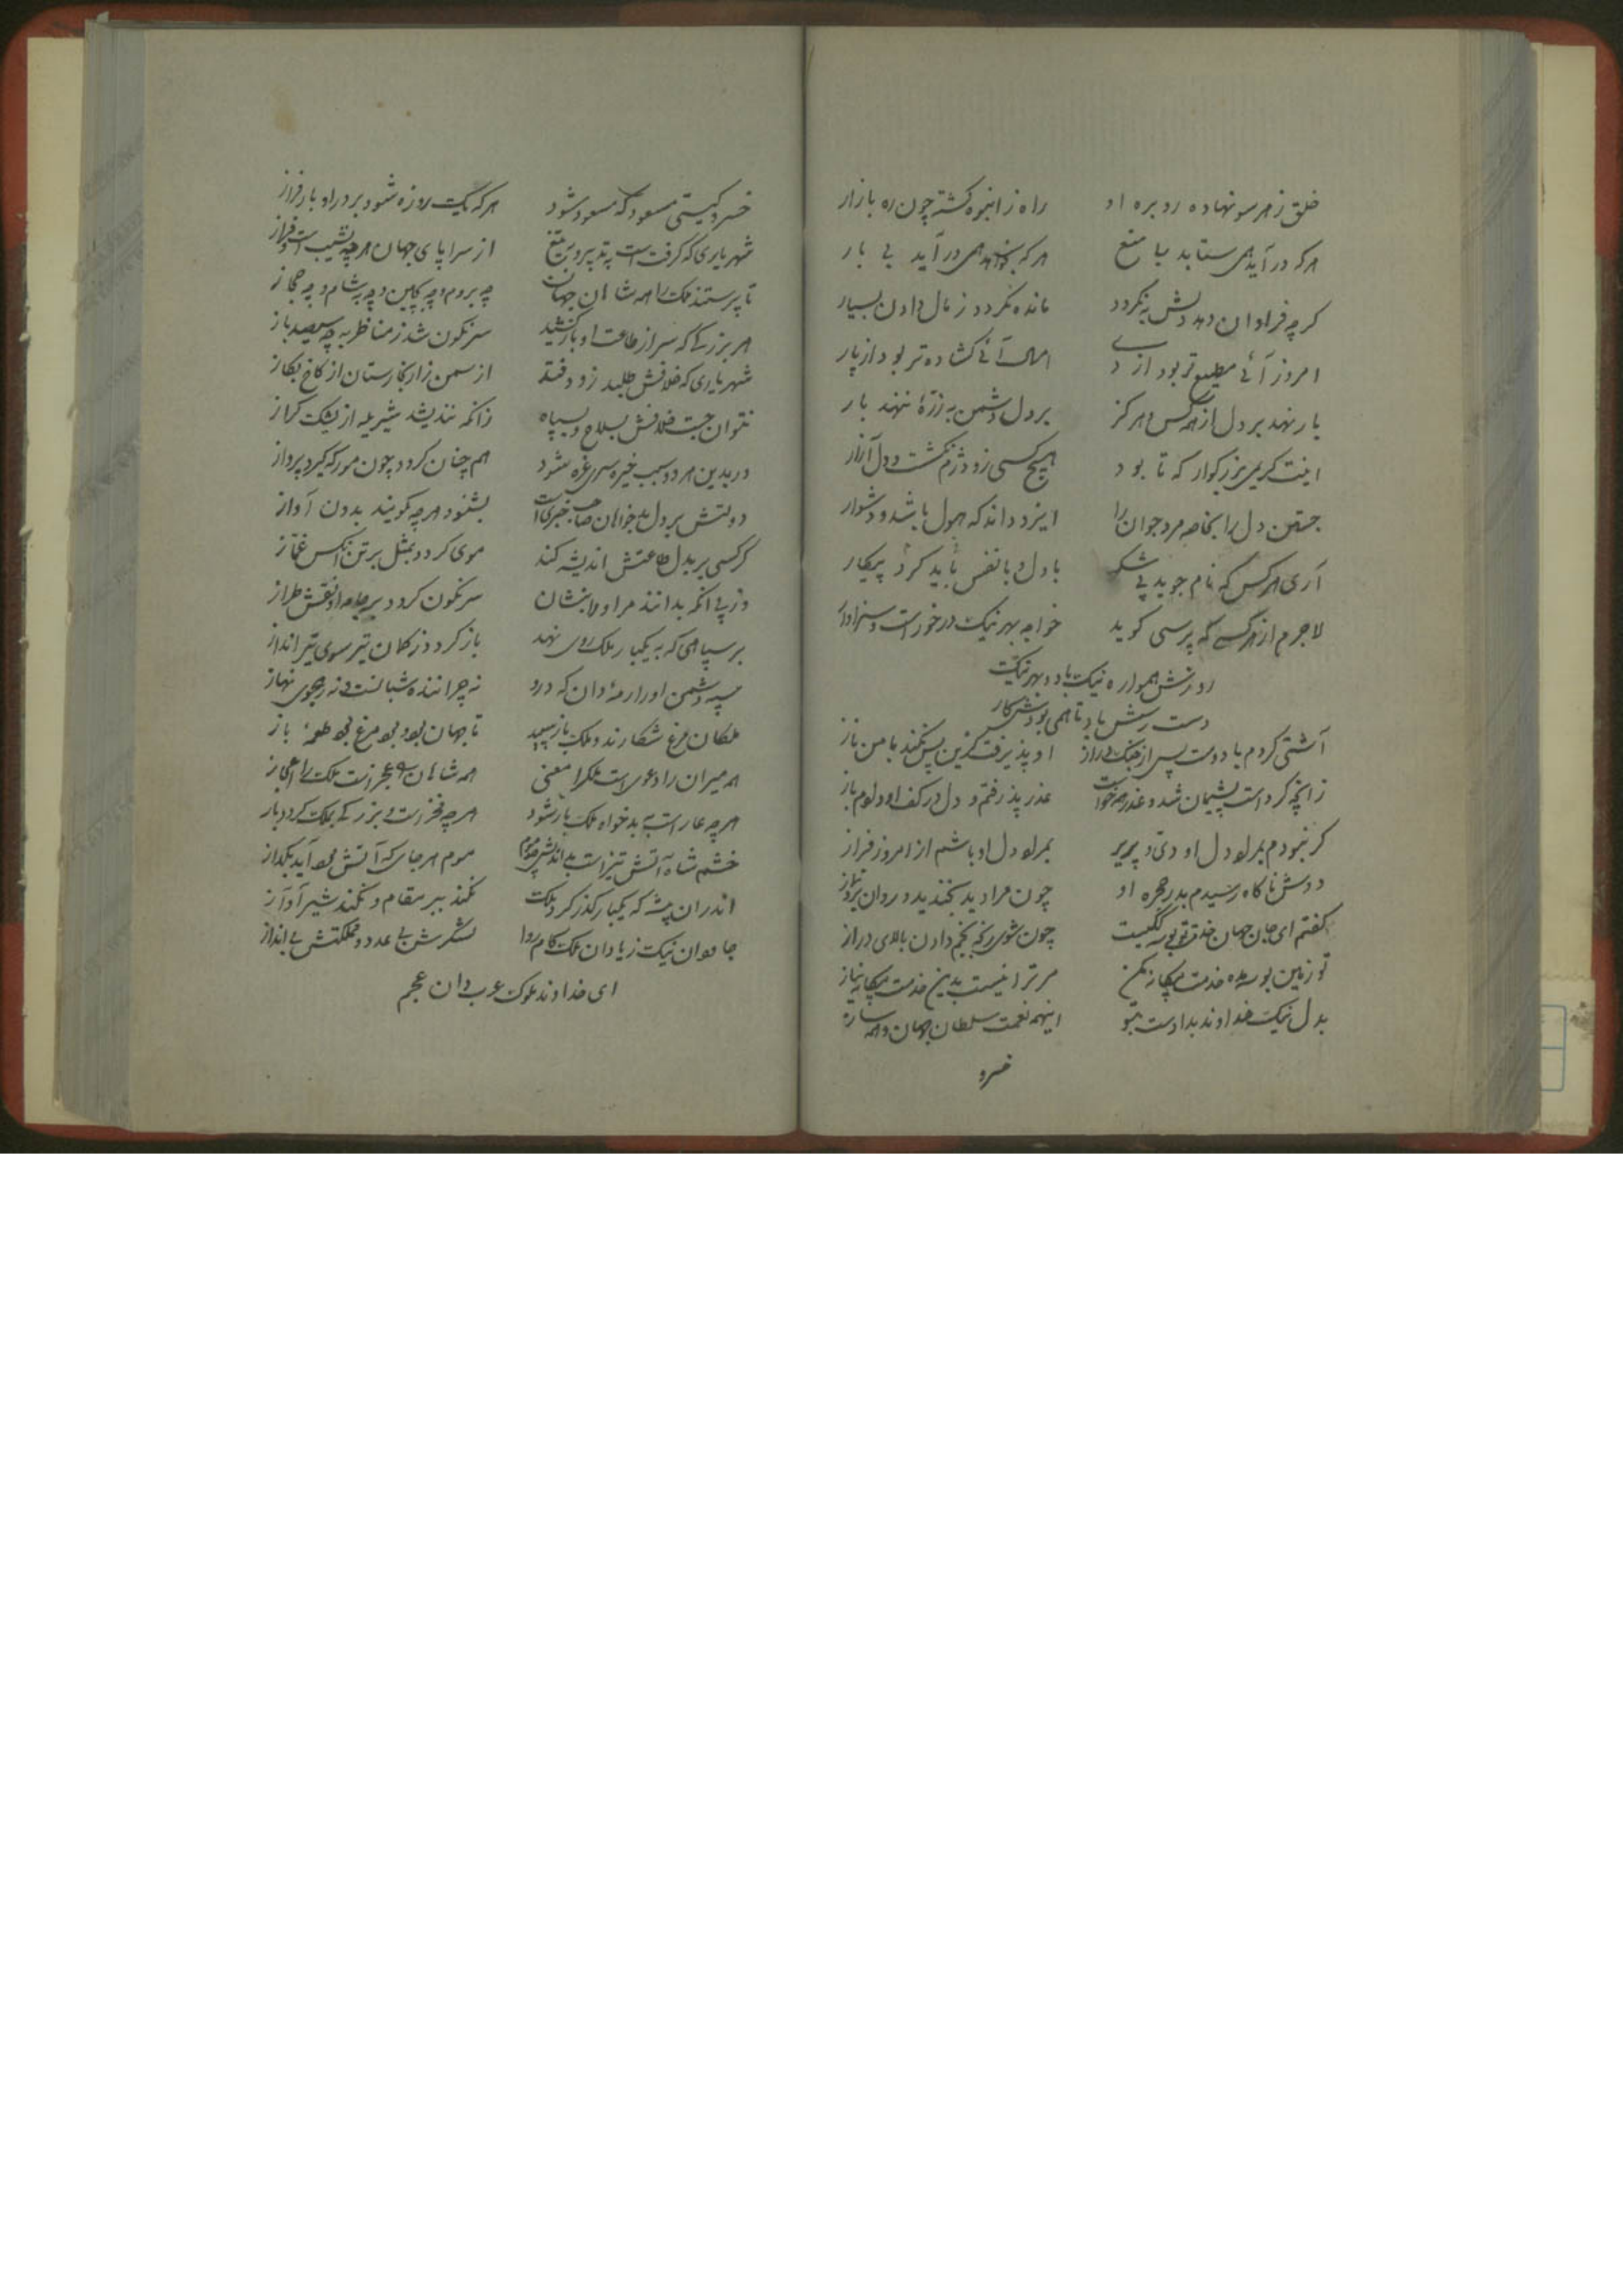 خلق ز هر سو نهاده رو بره او راه ز انبوه گشته چون ره بازار
هر که درآید همی ستابد با منع هر که بخواهد همی درآید بی بار
گرچه فراوان دهد دلش بنگردد مانده نگردد ز مال دادن بسیار
امروز آئی مطیع تر بود از دی امسال آئی گشاده تر بود از پار
بار نهد بر دل از همه کس و هرگز بر دل دشمن به ذرّهٔ ننهد بار
اینت کریمی بزرگوار که تا بود هیچ کسی زو دژم نگشت و دل آزار
جستن دل را بخاصه مرد جوان را ایزد داند که هول باشد و دشوار
آری هر کس که نام جوید بی شک با دل و با نفس باید کرد پیکار
لاجرم از هر کسی که پرسی گوید خواجه بهر نیک درخور است و سزاوار
روزش همواره نیک باد و بهر نیک
دست رسش باد تا همی بودش کار
آشتی کردم با دوست پس از جنگ دراز او پذیرفت کزین پس نکند با من ناز
زانچه کرد است پشیمان شد و عذر همه خواست عذر پذرفتم و دل در کف او دادم باز
گر نبودم بمراد دل او دی و پریر بمراد دل او باشم از امروز فراز
دوش ناگاه رسیدم بدر حجره او چون مرا دید بخندید و روان برد نماز
گفتم ای جان جهان خدمت تو بوسه بسست چون شوی رنجه بخم دادن بالای دراز
تو زمین بوسه مده خدمت بیگانه مکن مر ترا نیست بدین خدمت بیگانه نیاز
بدل نیک خداوند بدادست بتو اینهمه نعمت سلطان جهان و همه ساز
خسرو
خسرو گیتی مسعود که مسعود شود هر که یک روزه شود بر در او باز فراز
شهریاری که گرفت است بتدبیر و بتیغ از سراپای جهان هر چه نشیب است و فراز
تا پرستند ملک را همه شاهان جهان چه بروم و چه بچین و چه بشام و چه حجاز
هر بزرگی که سر از طاعت او باز کشید سرنگون شد ز مناظر به چه سیصد باز
شهریاری که خلافش طلبد زود فتد از سمن زار بخارستان از کاخ بکاز
نتوان جست خلافش بسلاح و بسپاه زانکه نندیشد شیر یله از یشک گراز
ور بدین هر دو سبب خیره سری غره شود هم چنان گردد چون مور که گیرد پرواز
دولتش بر دل بدخواهان صاحب خبری است بشنود هر چه بگویند بدون آواز
گر کسی بر بدل طاعتش اندیشه کند موی گردد بمثل بر تن آنکس غماز
وز پی آنکه بدانند مر او را بنشان سرنگون گردد بر جامه او نقش طراز
بر سپاهی که به یکبار ملک روی نهد باز گردد ز کمان تیر سوی تیرانداز
سپه دشمن او را رمهٔ دان که درو نه چراننده شبانست و نه رهجوی نهاز
ملکان مرغ شکارند و ملک باز سپید تا جهان بود بود مرغ بود طعمهٔ باز
همه میران را دعویست ملک را معنی همه شاهان را عجز است ملک را اعجاز
هر چه عار است به بدخواه ملک باز شود هر چه فخر است و بزرگی به ملک گردد باز
خشم شاه آتش تیز است بداندیش چو موم موم هر جای که آتش بود آید بگداز
اندران بیشه که یکبار گذر کرد ملک نکند ببر مقام و نکند شیر آواز
جاودان نیک زیادان ملک کام روا لشکرش بی عدد و مملکتش بی انداز
ای خداوند ملوک عرب و ان عجم